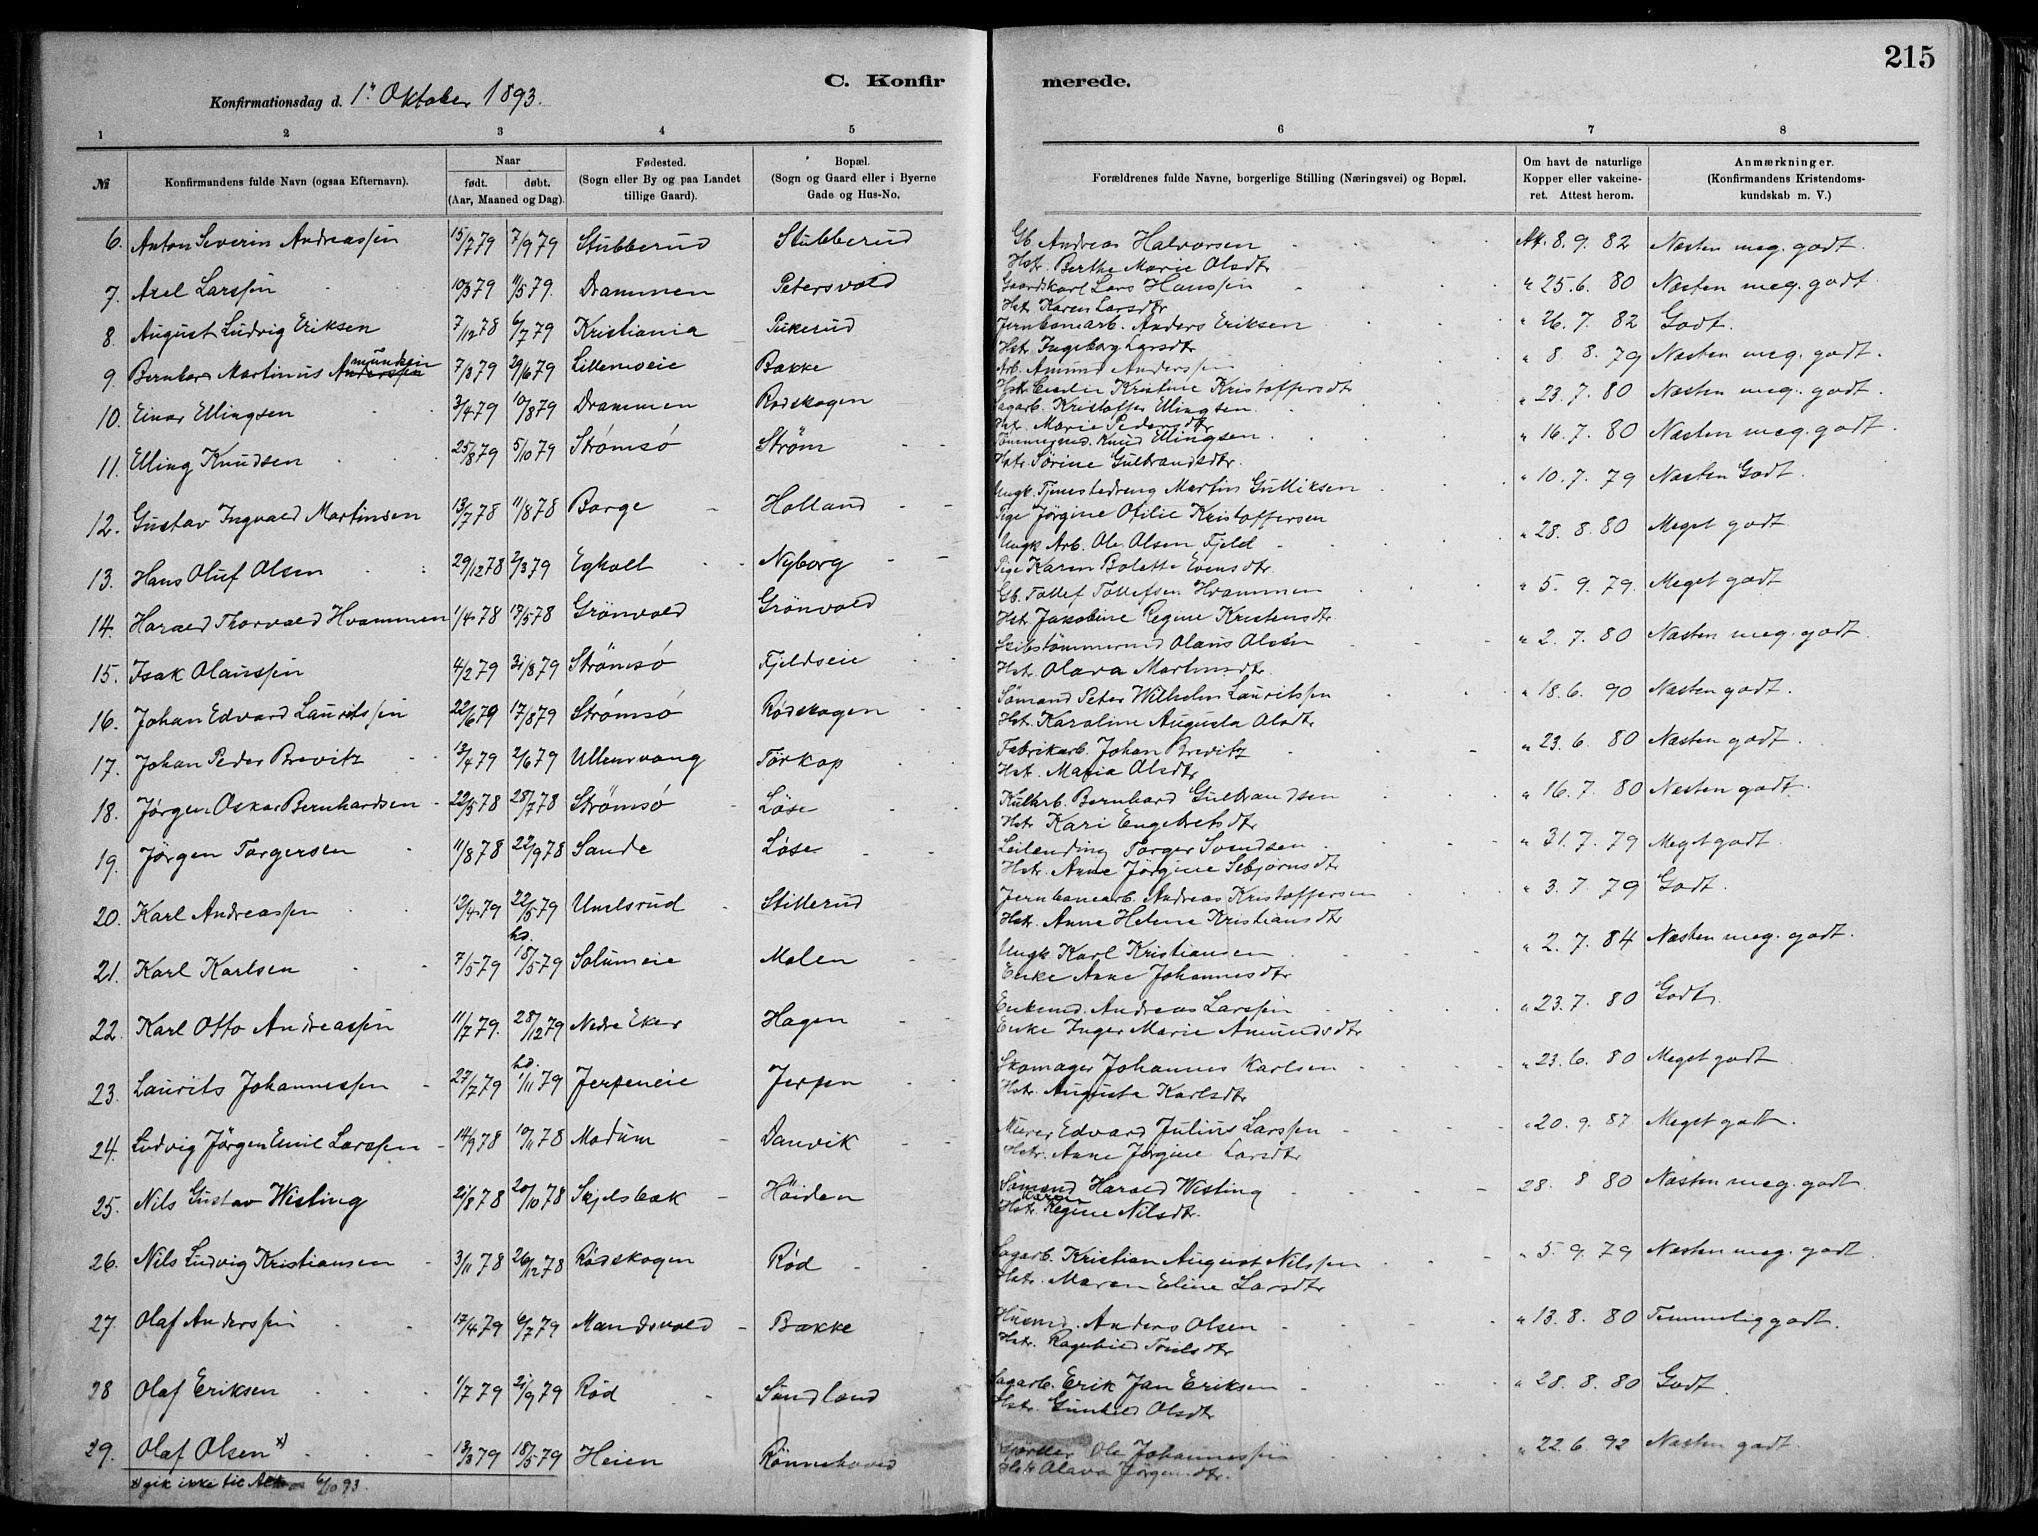 215
C. Konfir merede.
Konfirmationsdag d. 1ste Oktober 1893.
1 2 3 4 5 6 7 8
№ Konfirmandens fulde Navn (ogsaa Efternavn). Naar født. døbt. (Aar, Maaned og Dag). Fødested. (Sogn eller By og paa Landet tillige Gaard). Bopæl. (Sogn og Gaard eller i Byerne Gade og Hus-No. Forældrenes fulde Navne, borgerlige Stilling (Næringsvei) og Bopæl. Om havt de naturlige Kopper eller vakcineret. Attest herom. Anmærkninger. (Konfirmandens Kristendomskundskab m. V.)
6. Anton Severin Andreassen 15/7 79 7/9 79 Stubberud Stubberud Gb. Andreas Halvorsen At. 8. 9. 82 Næsten meg. godt.
Hstr. Berthe Marie Olsdtr
7. Axel Larssen 10/3 79 11/5 79. Drammen Petersvold Gaardskarl Lars Hanssen " 25. 6. 80 Næsten meg. godt
Hst. Karen Larsdtr
8. August Ludvig Eriksen 7/12 78 6/7 79 Kristiania Pukerud Jernbanearb. Anders Eriksen " 26. 7. 82 Godt.
Hst. Ingeborg Larsdtr
9. Bernhard Martinus Amundsen 7/3 79 29/6 79 Lillemoeie Bakke Arb. Amund Anderssen " 8. 8. 79 Næsten meg. godt.
Hstr. Emilie Kristine Kristoffersdtr
10. Einar Ellingsen 3/4 79 10/8 79 Drammen Rødskogen Sagarb. Kristoffer Ellingsen " 23. 7. 80 Næsten meg. godt.
Hst. Marie Pedersdtr
11. Elling Knudsen 25/8 79 5/10 79 Strømsø Strøm Tømmermd. Knud Ellingsen " 16. 7. 80 Næsten meg. godt.
Hstr Sørine Gulbrandsdtr.
12. Gustav Ingvald Martinsen 13/7 78 11/8 78 Borge Holland Ungk. Tjenestedreng Martin Gulliksen " 10. 7. 79 Næsten Godt.
Pige Jørgine Otilie Kristoffersen
13. Hans Oluf Olsen 29/12 78 2/3 79 Egholt Nyborg Ungk Arb. Ole Olsen Fjeld " 28. 8. 80 Meget godt
Pige Karen Bolette Evensdtr.
14. Harald Thorvald Hvammen 1/4 78 13/5 78 Grønvold Grønvold Gb. Tollef Tollefsen Hvammen " 5. 9. 79. Meget godt
Hst. Jakobine Regine Kristensdtr
15. Isak Olaussen 4/2 79 31/8 79 Strømsø Fjeldseie Skibstømmermd Olaus Olsen " 2. 7. 80 Næsten meg. godt.
Hst. Olava Martinsdtr
16. Johan Edvard Lauritssen 22/6 79 17/8 79 Strømsø Rødskogen Sømand Peter Wilhelm Lauritssen " 18. 6. 90 Næsten godt.
Hst. Karoline Augusta Olsdtr
17. Johan Peder Brevitz 13/4 79 2/6 79 Ullensvang Tørkop Fabrikarb. Johan Brevitz " 23. 6. 80 Næsten godt.
Hst. Maria Olsdtr
18. Jørgen Oskar Bernhardsen 22/5 78 28/7 78 Strømsø Løse Kulkrb. Bernhard Gulbrandsen " 16. 7. 80 Næsten godt.
Hstr Kari Engebretsdtr
19. Jørgen Torgersen 11/8 78 22/9 78 Sande Løse Leilending Torger Svendsen " 31. 7. 79 Meget godt.
Hstr. Anne Jørgine Sebjørnsdtr
20. Karl Andreassen 12/4 79 22/5 79 Unelsrud Stillerud Jernbanearb. Andreas Kristoffersen " 3. 7. 79 Godt.
Hstr. Anne Helene Kristiansdtr
21. Karl Karlsen 7/5 79 hd. 18/5 79 Solumeie Molen Ungk. Karl Kristiansen " 2. 7. 84 Næsten meg. godt.
Enke Anne Johannesdtr
22. Karl Otto Andreassen 11/7 79. 28/12 79 Nedre Eker Hagen Enkemd. Andreas Larssen " 23. 7. 80 Godt.
Enke Inger Marie Amundsdtr
23. Laurits Johannessen 27/7 79 hd. 1/11 79 Jerpeneie Jerpen Skomager Johannes Karlsen " 23. 6. 80 Meget godt
Hstr. Augusta Karlsdtr
24. Ludvig Jørgen Emil Larssen 14/9 78 10/11 78 Modum Danvik Murer Edvard Julius Larssen " 20. 9. 87 Meget godt.
Hstr. Anne Jørgine Larsdtr
25. Nils Gustav Wisting 21/8 78 20/10 78 Skjelsbæk Høiden Sømand Harald Wisting 28. 8 80 Næsten meg. godt.
Hstr. Karen Regine Nilsdtr.
26. Nils Ludvig Kristiansen 3/11 78 26/12 78 Rødskogen Rød Sagarb. Kristian August Nilssen " 5. 9. 79 Næsten meg. godt
Hstr. Maren Eline Larsdtr
27. Olaf Anderssen 17/4 79 6/7 79 Mandsvold Bakke Husmd. Anders Olsen " 13. 8. 80 Temmelig godt.
Hstr. Ragnhild Troelsdtr
28 Olaf Eriksen 1/7 79 21/9 79 Rød Sundland Sagarb. Erik Jan Eriksen " 28. 8. 80 Godt.
Hstr. Gunhild Olsdtr
29. Olaf Olsen x) 13/3 79 18/5 79 Heien Rønnehoved Ole Johannessen " 22. 6. 92 Næsten godt.
Hstr Olava Jørgensdtr.
x) gik ikke til 6/10 93.